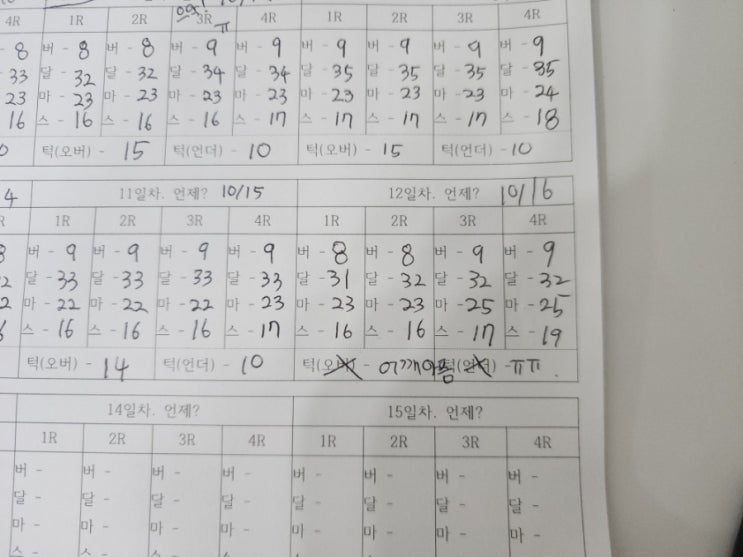 4R 1R 2R 3R 4R 1R 2R 3R 4R
ㅠ
8 버 - 8 버 - 8 버 - 9 버 - 9 버 - 9 버 - 9 버 - 9 버 - 9
33 달 - 32 달 - 32 달 - 34 달 - 34 달 - 35 달 - 35 달 - 35 달 - 35
23 마 - 23 마 - 23 마 - 23 마 - 23 마 - 23 마 - 23 마 - 23 마 - 24
16 스 - 16 스 - 16 스 - 16 스 - 17 스 - 17 스 - 17 스 - 17 스 - 18
턱(오버) - 15 턱(언더) - 10 턱(오버) - 15 턱(언더) - 10
4 11일차. 언제? 10/15 12일차. 언제? 10/16
1R 2R 3R 4R 1R 2R 3R 4R
버 - 9 버 - 9 버 - 9 버 - 9 버 - 8 버 - 8 버 - 9 버 - 9
달 - 33 달 - 33 달 - 33 달 - 33 달 - 31 달 - 32 달 - 32 달 - 32
마 - 22 마 - 22 마 - 22 마 - 23 마 - 23 마 - 23 마 - 25 마 - 25
스 - 16 스 - 16 스 - 16 스 - 17 스 - 16 스 - 16 스 - 17 스 - 19
턱(오버) - 14 턱(언더) - 10 턱(오버) - 어깨아픔 턱(언더) - ㅠㅠ
14일차. 언제? 15일차. 언제?
1R 2R 3R 4R 1R 2R 3R 4R
버 - 버 - 버 - 버 - 버 - 버 - 버 - 버 -
달 - 달 - 달 - 달 - 달 - 달 - 달 - 달 -
마 - 마 - 마 - 마 - 마 - 마 - 마 - 마 -
스 -